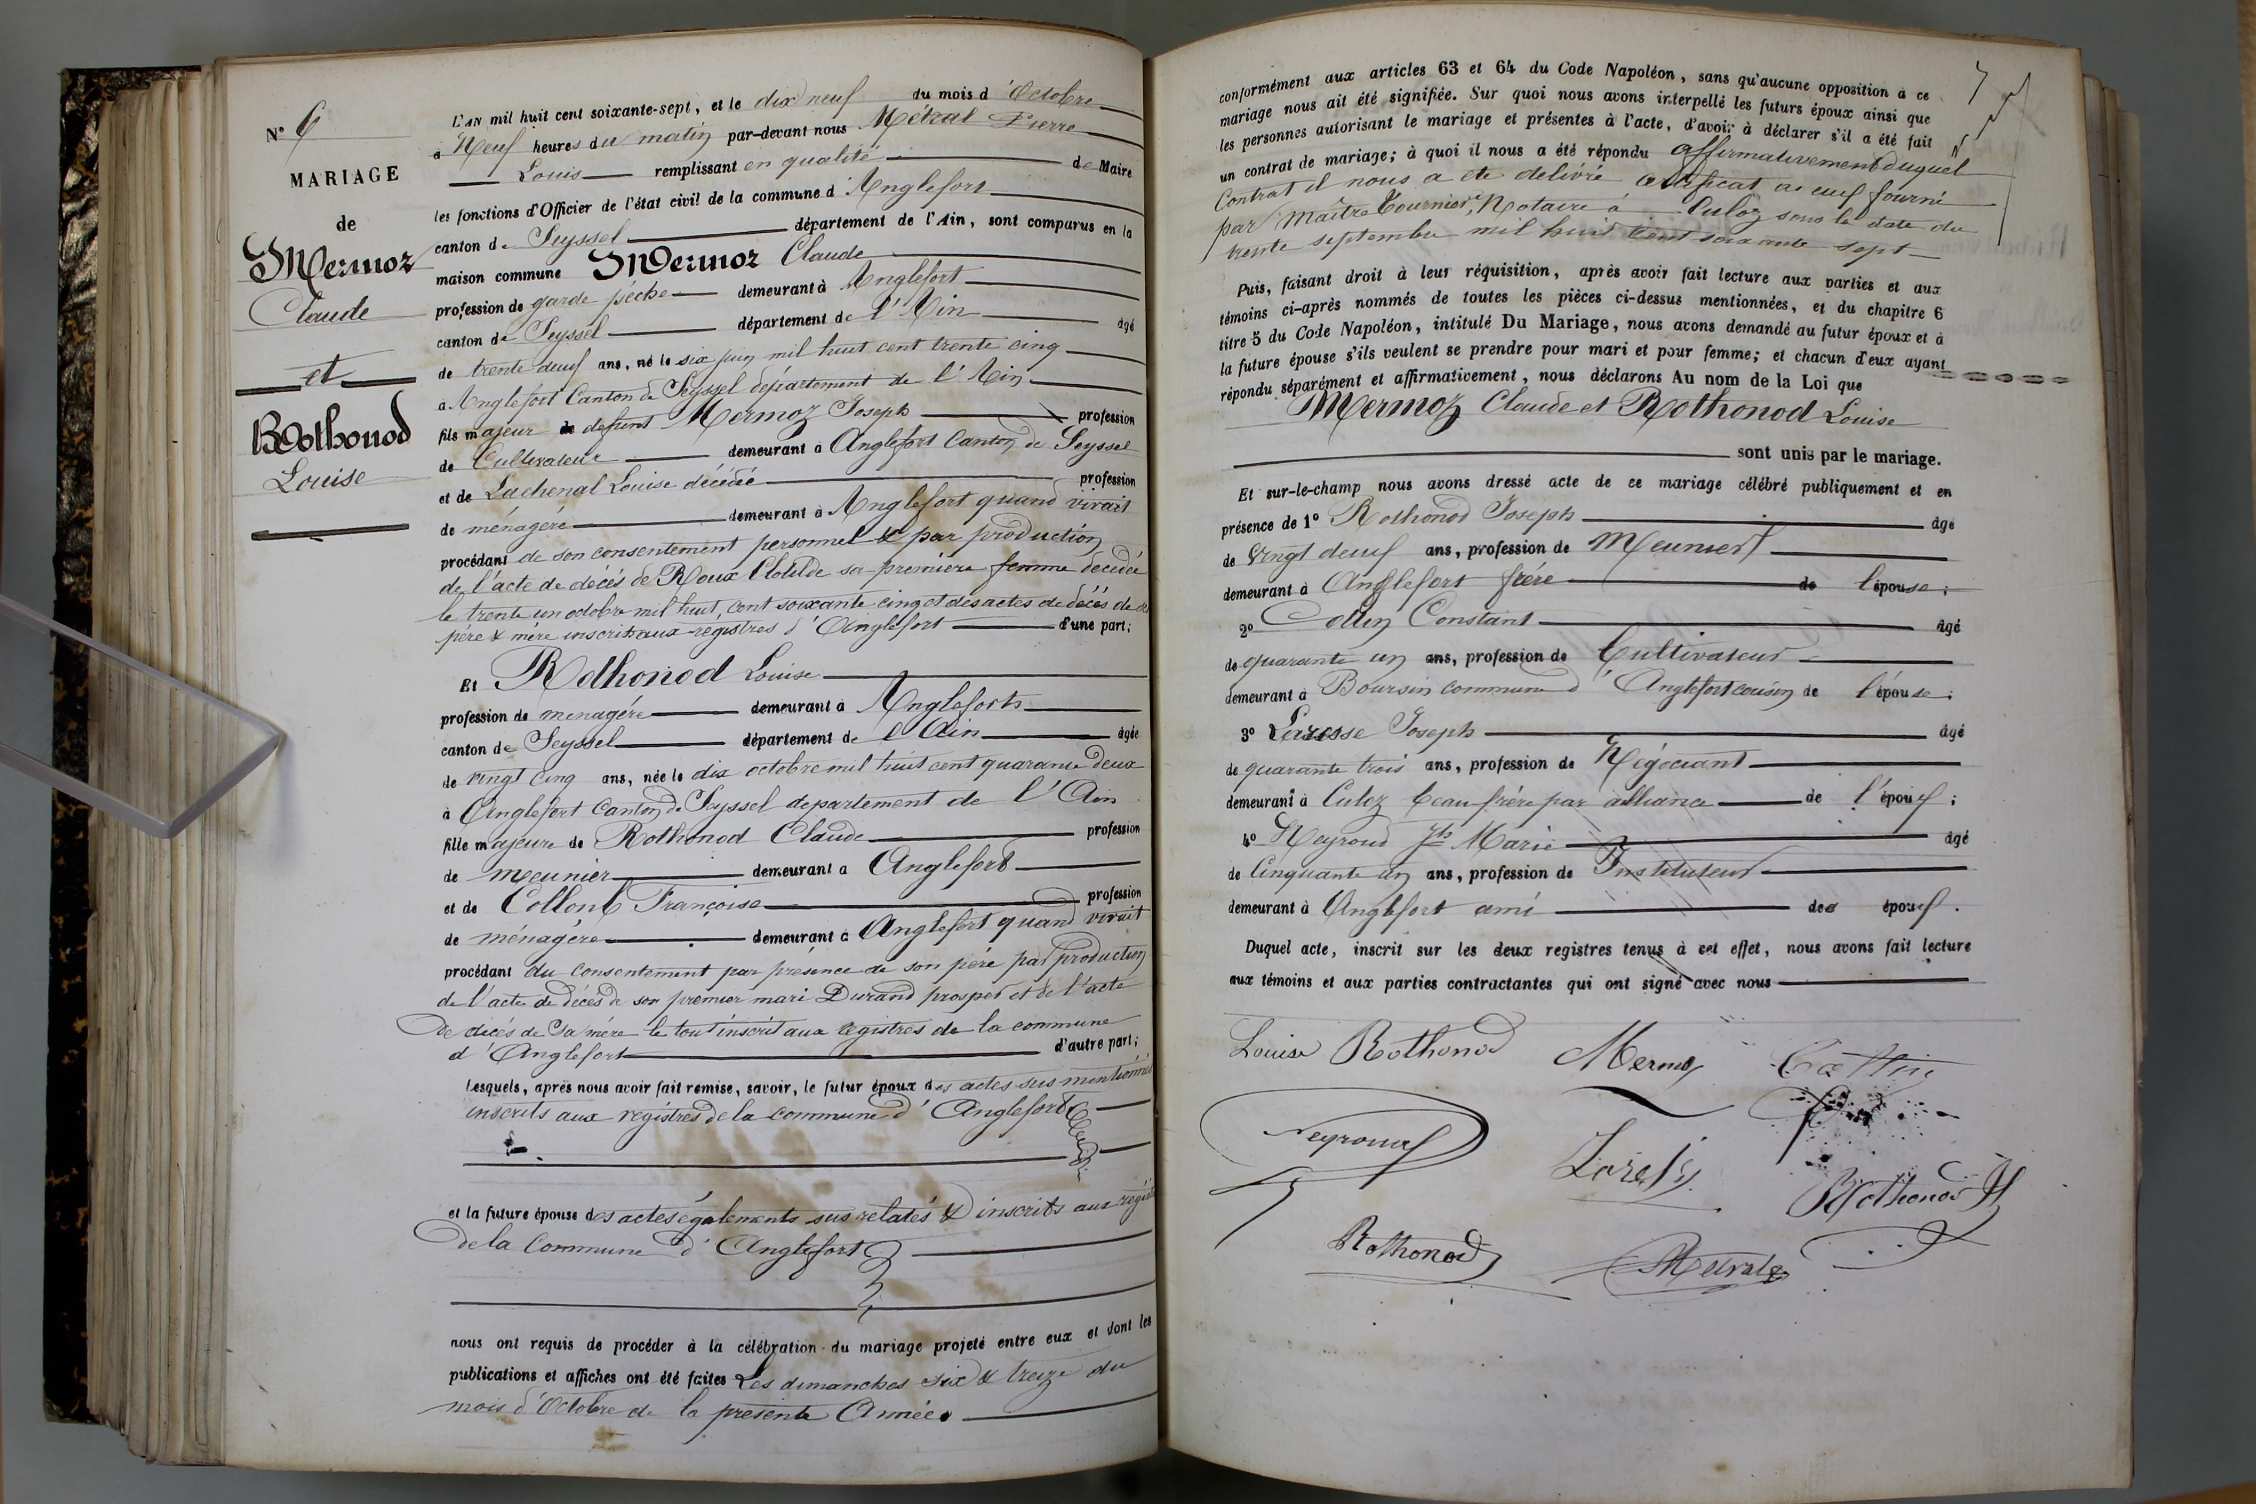 N° 6
MARIAGE
de
Mermoz
Claude
et
Rothonod
Louise
L'AN mil huit cent soixante-sept, et le dix neuf du mois d'Octobre
à Neuf heures du matin par-devant nous Métral Pierre
Louis remplissant en qualité de Maire
les fonctions d'Officier de l'état civil de la commune d'Anglefort
canton de Seyssel département de l'Ain, sont comparus en la
maison commune Mermoz Claude
profession de garde pêche demeurant à Anglefort
canton de Seyssel département de l'Ain âgé
de trente deux ans, né le six juin mil huit cent trente cinq
à Anglefort Canton de Seyssel département de l'Ain
fils majeur de defunt Mermoz Joseph profession
de Cultivateur demeurant à Anglefort Canton de Seyssel
et de Lachenal Louise décédée profession
de ménagère demeurant à Anglefort quand vivait
procédant de son consentement personnel & par production
de l'acte de décés de Roux Clotilde sa première femme décédée
le trente un octobre mil huit cent soixante cinq et des actes de décés de ses
père & mère inscrits aux régistres d'Anglefort d'une part;
Et Rothonod Louise
profession de menagére demeurant à Anglefort
canton de Seyssel département de l'Ain âgée
de vingt cinq ans, née le dix octobre mil huit cent quarante deux
à Anglefort Canton de Seyssel departement de l'Ain
fille majeure de Rothonod Claude profession
de meunier demeurant à Anglefort
et de Collomb Françoise profession
de ménagère demeurant à Anglefort quand vivait
procédant du consentement par présence de son père par production
de l'acte de décés de son premier mari Durand prosper et de l'acte
de décés de sa mère le tout inscrit aux registres de la commune
d'Anglefort d'autre part;
Lesquels, après nous avoir fait remise, savoir, le futur époux des actes sus mentionnés
inscrits aux registres de la commune d'Anglefort
et la future épouse des actes également sus relatés & inscrits aux régistres
de la Commune d'Anglefort
nous ont requis de procéder à la célébration du mariage projeté entre eux et dont les
publications et affiches ont été faites Les dimanches six & treize du
mois d'Octobre de la présente Année
7
conformément aux articles 63 et 64 du Code Napoléon, sans qu'aucune opposition à ce
mariage nous ait été signifiée. Sur quoi nous avons interpellé les futurs époux ainsi que
les personnes autorisant le mariage et présentes à l'acte, d'avoir à déclarer s'il a été fait
un contrat de mariage; à quoi il nous a été répondu affirmativement duquel
Contrat il nous a été délivré certificat fourni
par Maître Tournier, Notaire à Culoz sous la date du
trente septembre mil huit cent soixante sept
Puis, faisant droit à leur réquisition, après avoir fait lecture aux parties et aux
témoins ci-après nommés de toutes les pièces ci-dessus mentionnées, et du chapitre 6
titre 5 du Code Napoléon, intitulé Du Mariage, nous avons demandé au futur époux et à
la future épouse s'ils veulent se prendre pour mari et pour femme; et chacun d'eux ayant
répondu séparément et affirmativement, nous déclarons Au nom de la Loi que
Mermoz Claude et Rothonod Louise
sont unis par le mariage.
Et sur-le-champ nous avons dressé acte de ce mariage célébré publiquement et en
présence de 1° Rothonod Joseph âgé
de vingt deux ans, profession de Meunier
demeurant à Anglefort frère de l'épouse;
2° Collin Constant âgé
de quarante un ans, profession de Cultivateur
demeurant à Boursin commune d'Anglefort cousin de l'épouse;
3° Joseph âgé
de quarante trois ans, profession de Négociant
demeurant à Culoz beau frère par alliance de l'époux;
4° Neyroud Jh Marie âgé
de Cinquante un ans, profession de Instituteur
demeurant à Anglefort ami des époux.
Duquel acte, inscrit sur les deux registres tenus à cet effet, nous avons fait lecture
aux témoins et aux parties contractantes qui ont signé avec nous
Louise Rothonod Mermoz
Neyroud Rothonod
Rothonod Métral